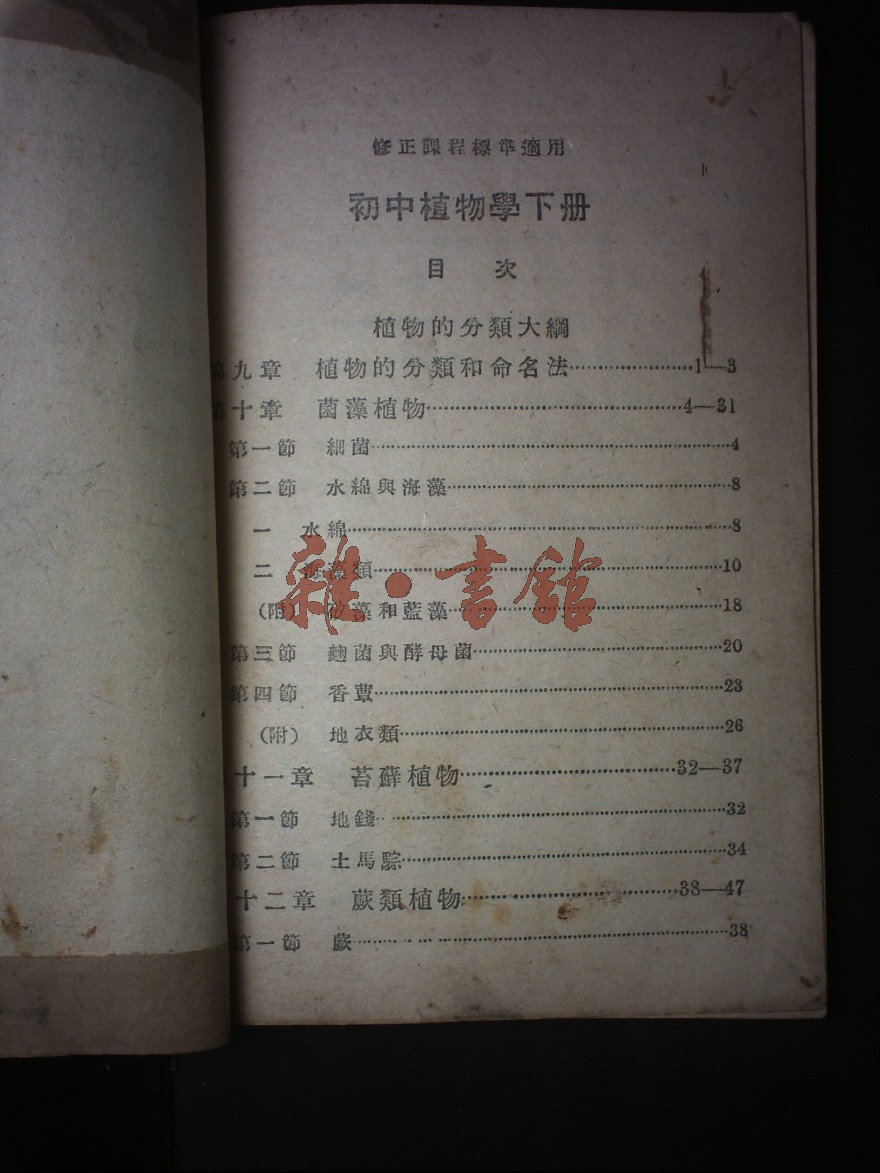 修正課程標準適用
初中植物學下册
目 次
植物的分類大綱
第九章 植物的分類和命名法……………1—3
第十章 菌藻植物……………4—31
第一節 細菌……………4
第二節 水綿與海藻……………8
一 水綿……………8
二 海藻類……………10
(附) 矽藻和藍藻……………18
第三節 麴菌與酵母菌……………20
第四節 香蕈……………23
(附) 地衣類……………26
十一章 苔蘚植物……………32—37
第一節 地錢……………32
第二節 土馬騌……………34
十二章 蕨類植物……………38—47
第一節 蕨……………38
雜·書館